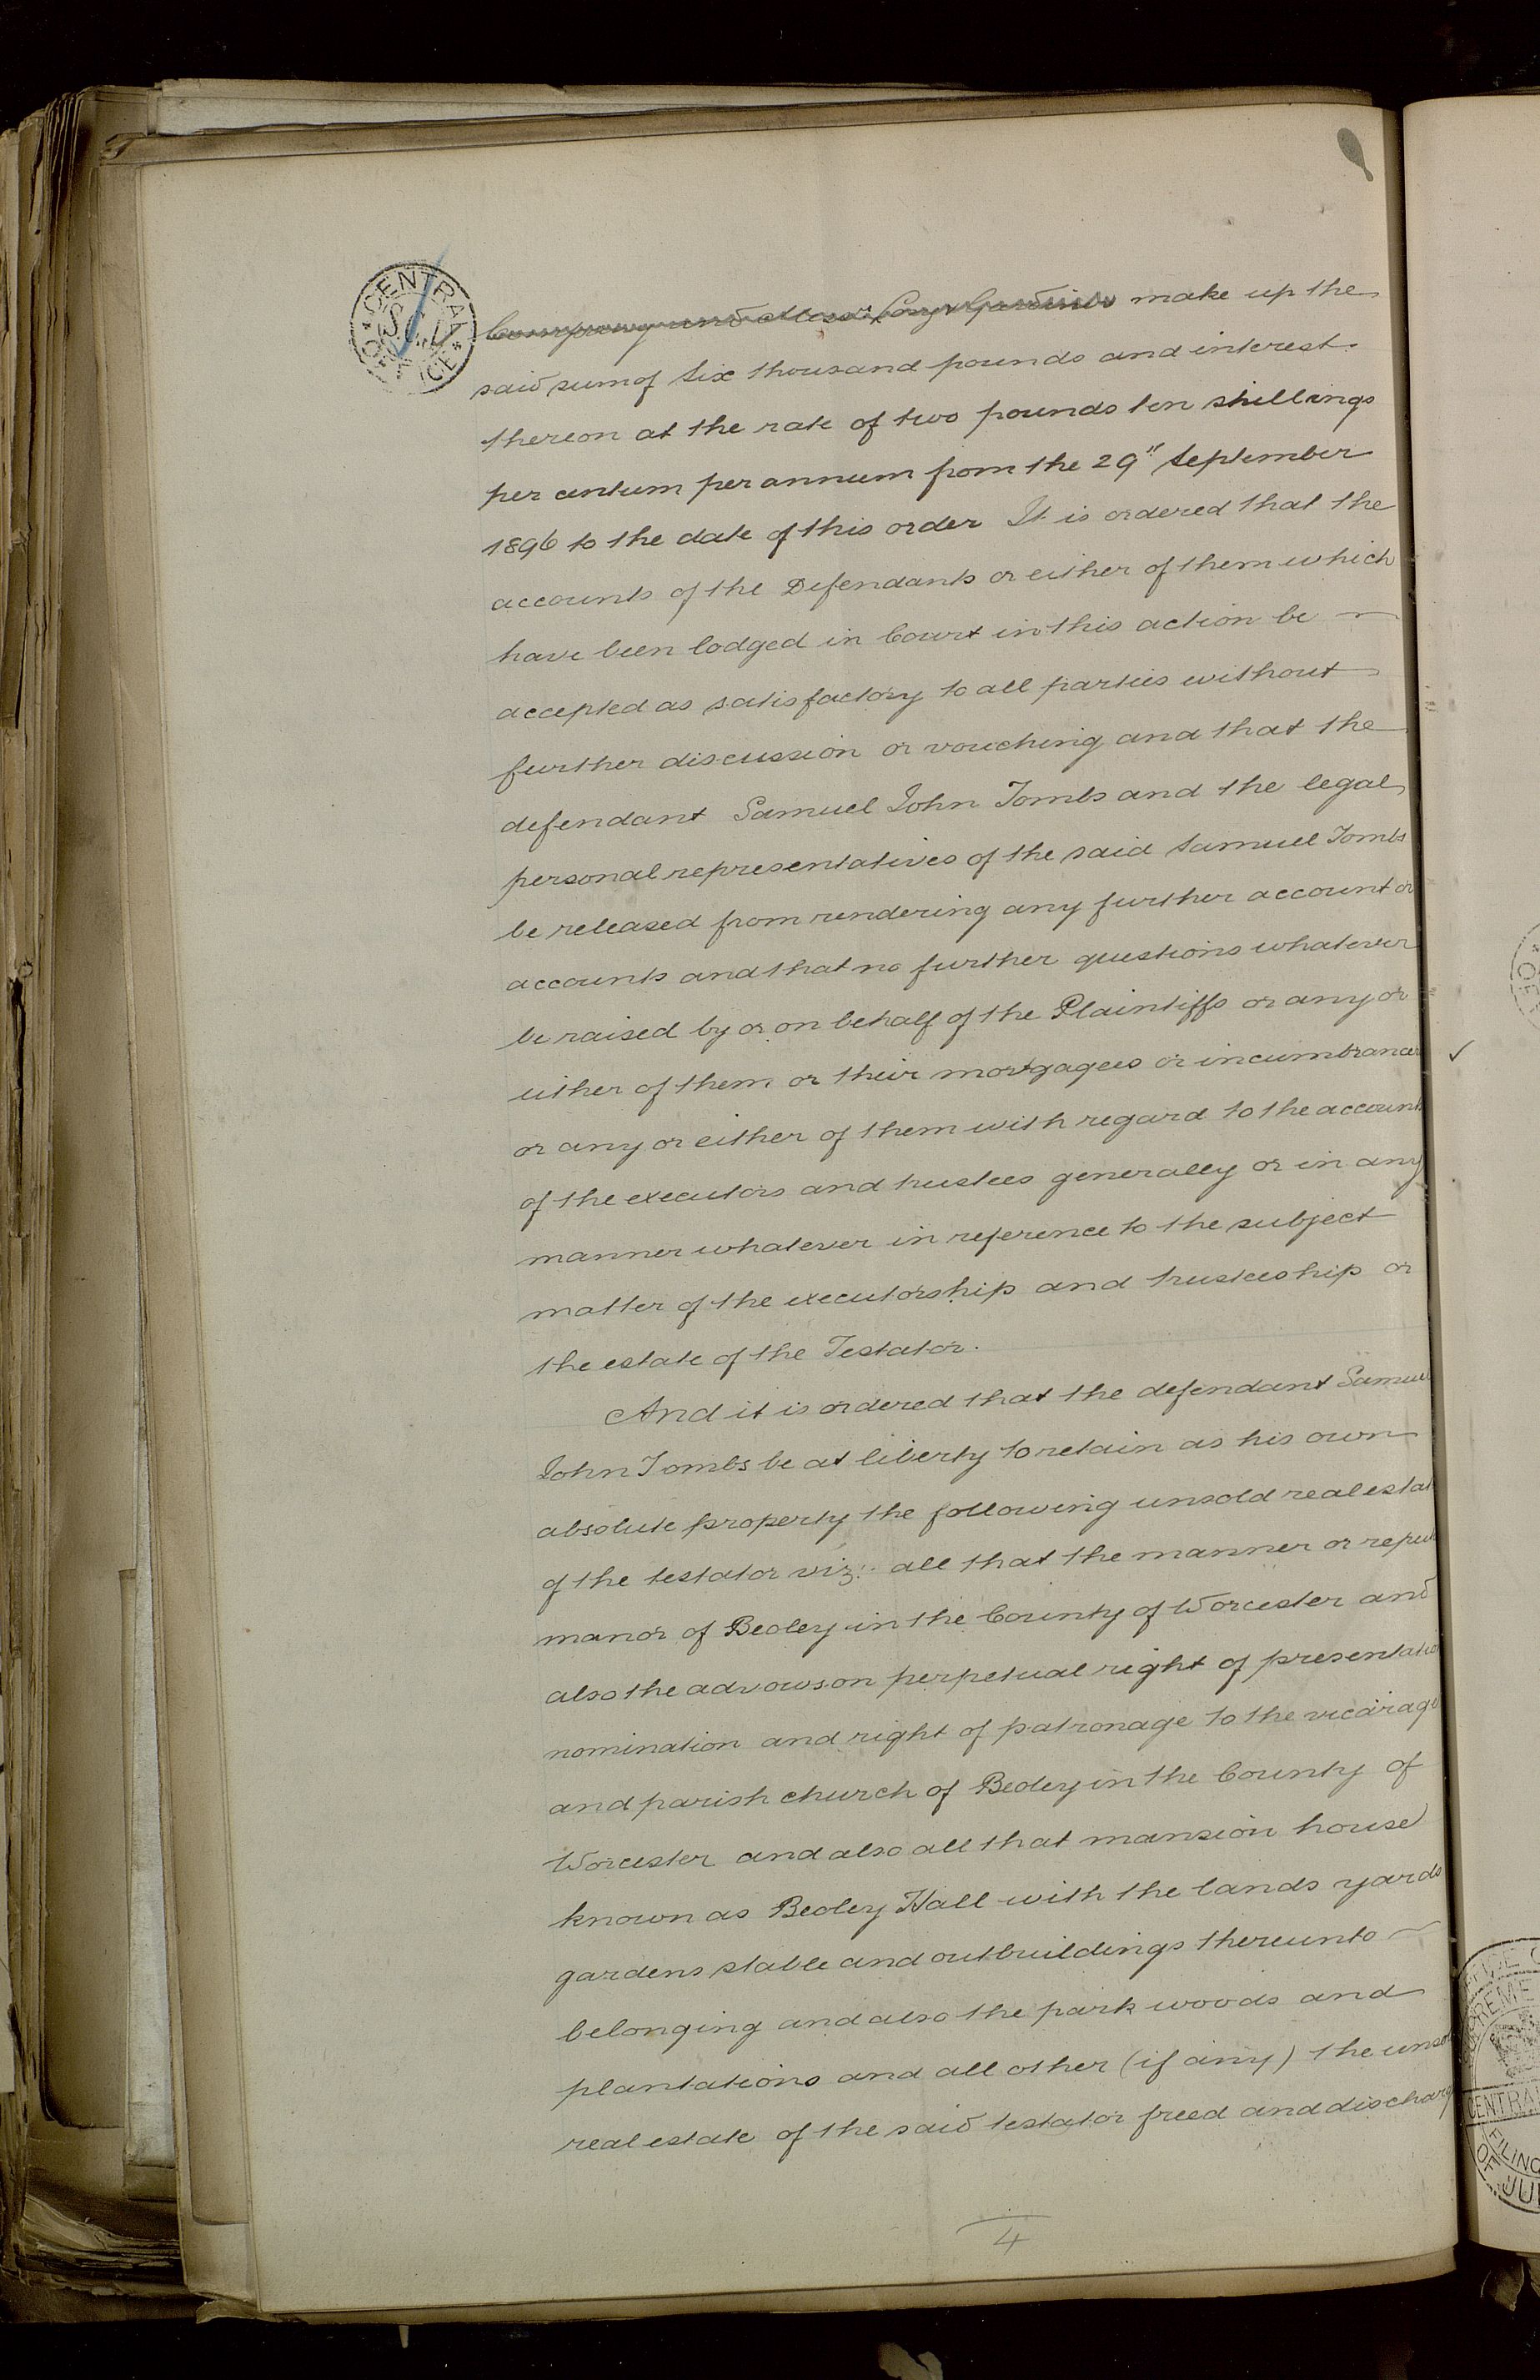 CENTRAL OFFICE
Company and Messrs Long & Gardiner make up the
said sum of Six thousand pounds and interest
thereon at the rate of two pounds ten shillings
per centum per annum from the 29" September
1896 to the date of this order It is ordered that the
accounts of the Defendants or either of them which
have been lodged in Court in this action be
accepted as satisfactory to all parties without
further discussion or vouching and that the
defendant Samuel John Tombs and the legal
personal representatives of the said Samuel Tombs
be released from rendering any further account or
accounts and that no further questions whatever
be raised by or on behalf of the Plaintiffs or any or
either of them or their mortgagees or incumbrancer
or any or either of them with regard to the account
of the executors and trustees generally or in any
manner whatever in reference to the subject
matter of the executorship and trusteeship or
the estate of the Testator.
And it is ordered that the defendant Samuel
John Tombs be at liberty to retain as his own
absolute property the following unsold real estat
of the testator viz:- all that the manner or repu
manor of Beoley in the County of Worcester and
also the advowson perpetual right of presentatio
nomination and right of patronage to the vicarage
and parish church of Beoley in the County of
Worcester and also all that mansion house
known as Beoley Hall with the lands yards
gardens stable and outbuildings thereunto
belonging and also the park woods and
plantations and all other (if any) the unso
real estate of the said testator freed and discharg
4
REME
CENTRA
FILING
OF JU